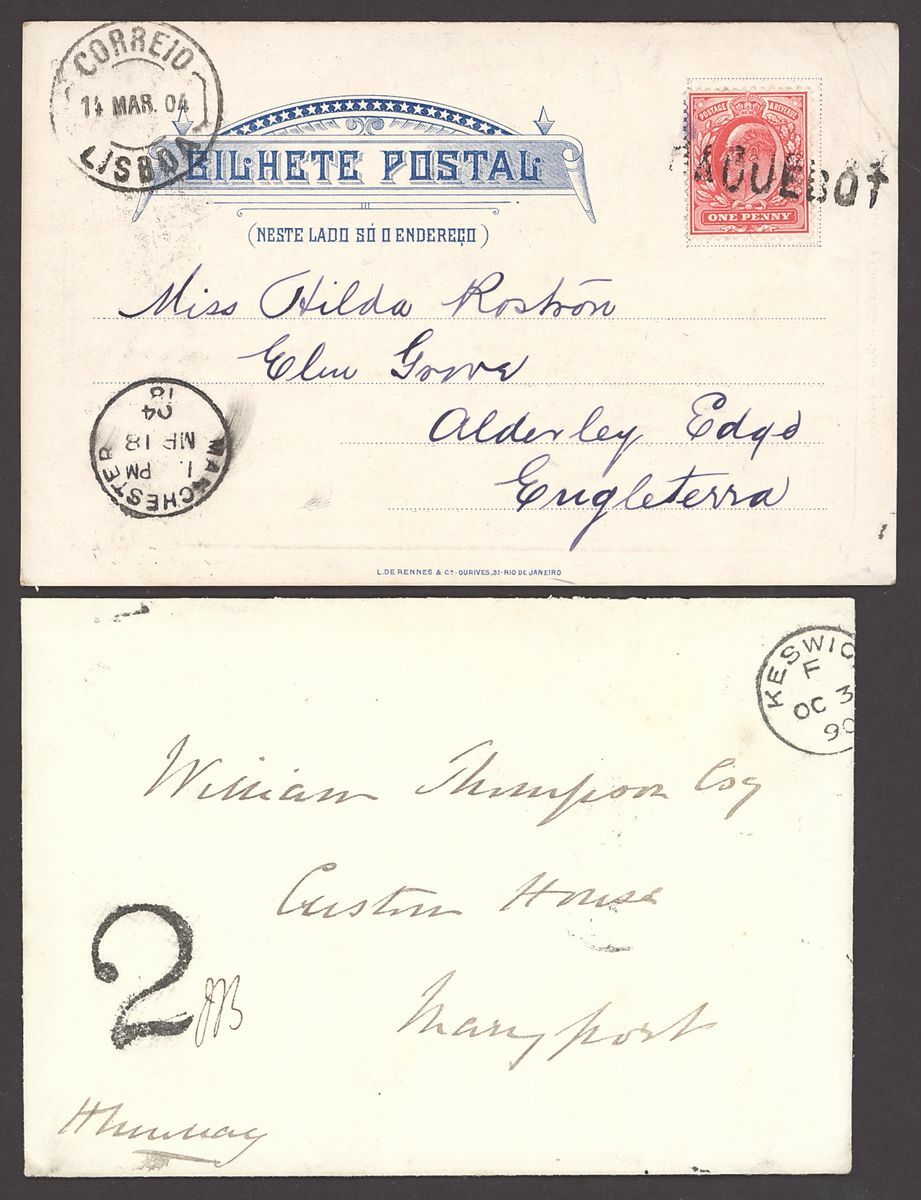 CORREIO
14 MAR. 04
LISBOA
BILHETE POSTAL
(NESTE LADO SÓ O ENDEREÇO)
POSTAGE REVENUE
ONE PENNY
PAQUEBOT
Miss Hilda Rostron
Elm Grove
Alderley Edge
Engleterra
MANCHESTER
1 PM
MR 18
04
18
L. DE RENNES & Cº - OURIVES, 31 - RIO DE JANEIRO
KESWIC
F
OC 3
90
William Thompson Esq
Custom House
Maryport
2